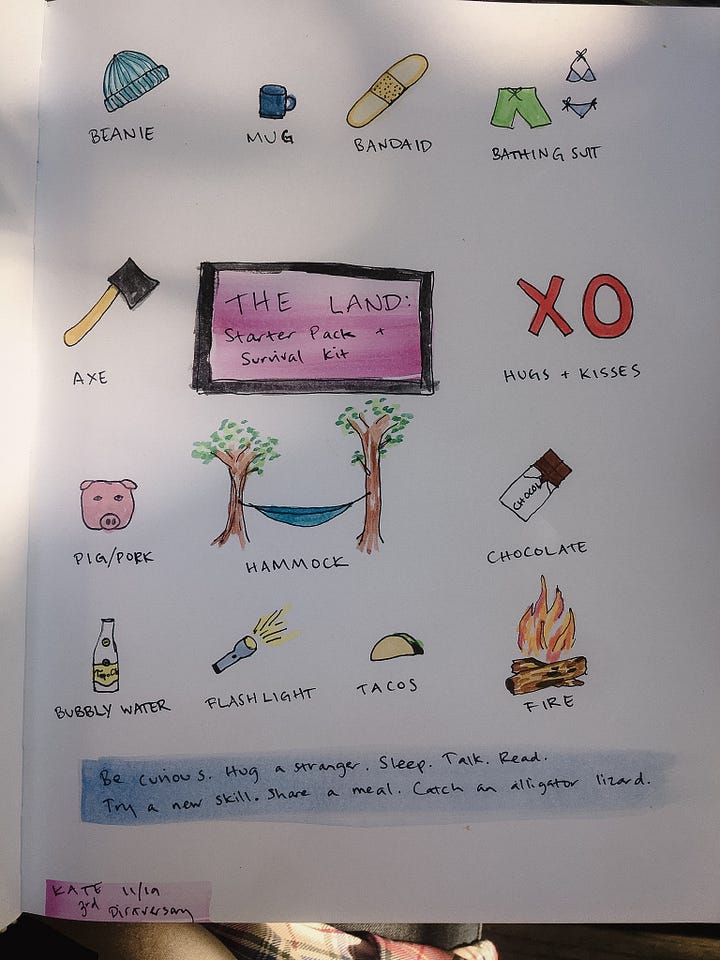 BEANIE
MUG
BANDAID
BATHING SUIT
THE LAND:
Starter Pack +
Survival Kit
AXE
XO
HUGS + KISSES
PIG/PORK
HAMMOCK
CHOCOLATE
BUBBLY WATER
FLASHLIGHT
TACOS
FIRE
Be curious. Hug a stranger. Sleep. Talk. Read.
Try a new skill. Share a meal. Catch an alligator lizard.
KATE 11/19
3rd Dirtversary